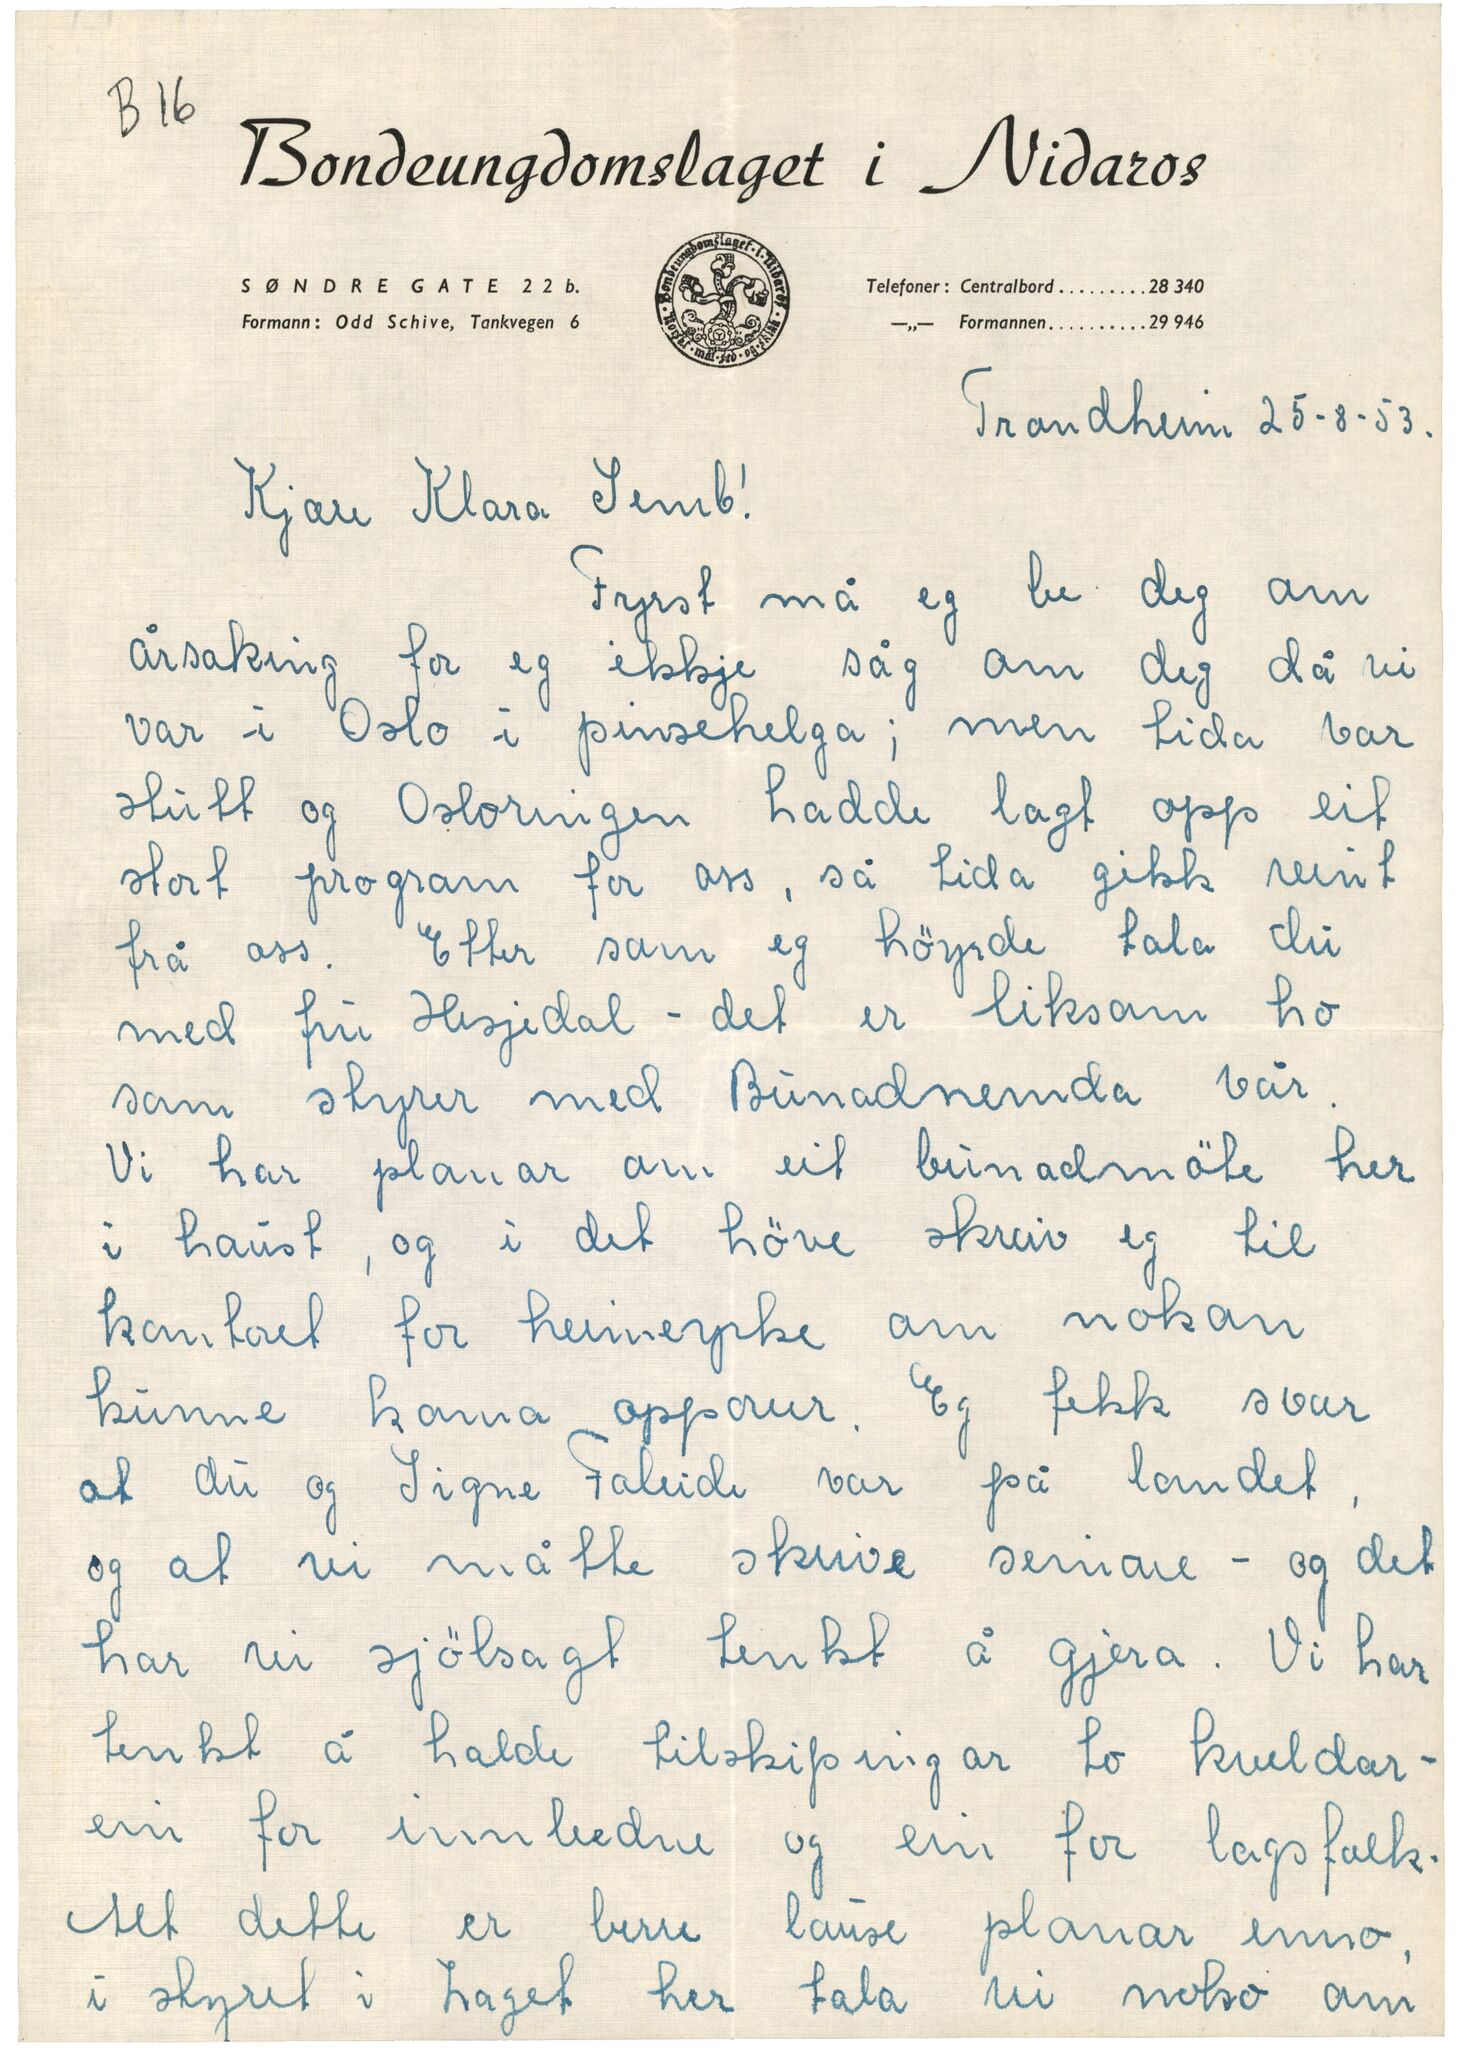 B 16
Bondeungdomslaget i Nidaros
SØNDRE GATE 22 b.
Formann: Odd Schive, Tankvegen 6
Bondeungdomslaget · i · Nidaros · Norsk · mål · sed · og · skikk
Telefoner: Centralbord.........28 340
—„— Formannen..........29 946
Trondheim 25-8-53.
Kjære Klara Semb!
Fyrst må eg be deg om
årsaking for eg ikkje såg om deg då vi
var i Oslo i pinsehelga; men tida var
stutt og Osloringen hadde lagt opp eit
stort program for oss, så tida gikk reint
frå oss. Etter som eg höyrde tala du
med fru Hesjedal - det er liksom ho
som styrer med Bunadnemda vår.
Vi har planar om eit bunadmöte her
i haust, og i det höve skreiv eg til
kontoret for heimeyrke om nokon
kunne koma oppover. Eg fekk svar
at du og Signe Faleide var på landet,
og at vi måtte skrive seinare - og det
har vi sjölsagt tenkt å gjera. Vi har
tenkt å halde tilskipingar to kveldar -
ein for innbedne og ein for lagsfolk.
Alt dette er berre lause planar enno,
i styret i Laget her tala vi nokso om